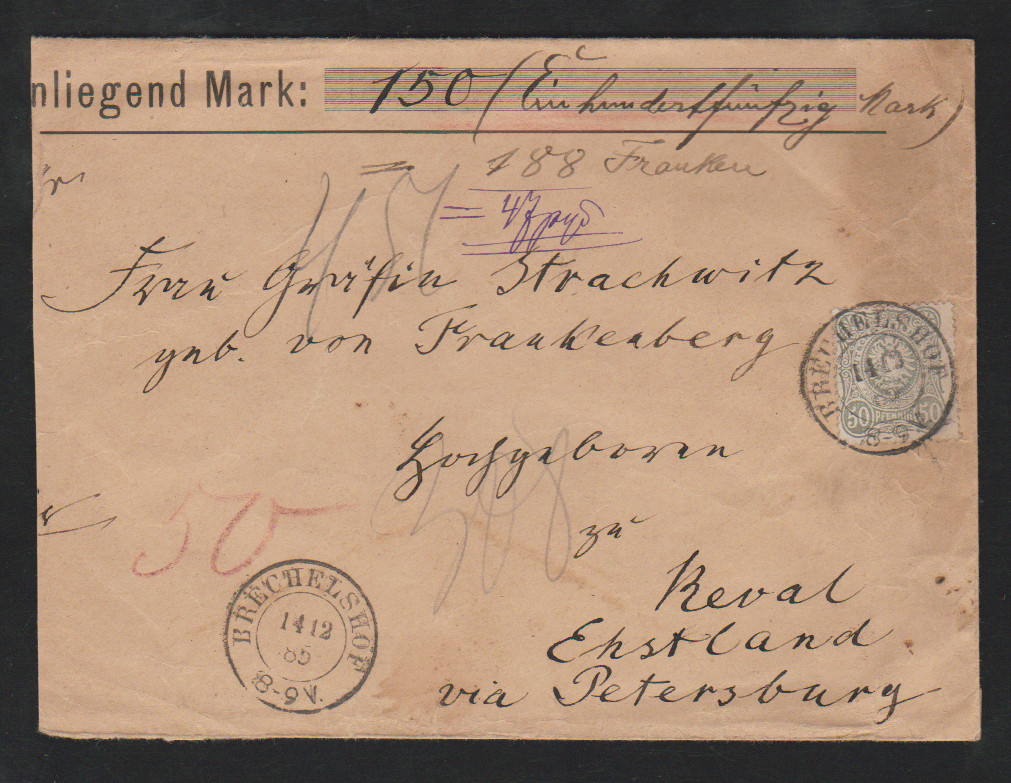 nliegend Mark: 150 (Einhundertfünfzig Mark)
= 188 Franken
= 47
Frau Gräfin Strachwitz
geb. von Frankenberg
BRECHELSHOF
14 12
8-9 V.
50 PFENNIG 50
Hochgeboren
50
zu
Reval
Ehstland
via Petersburg
BRECHELSHOF
14 12
85
8-9 V.